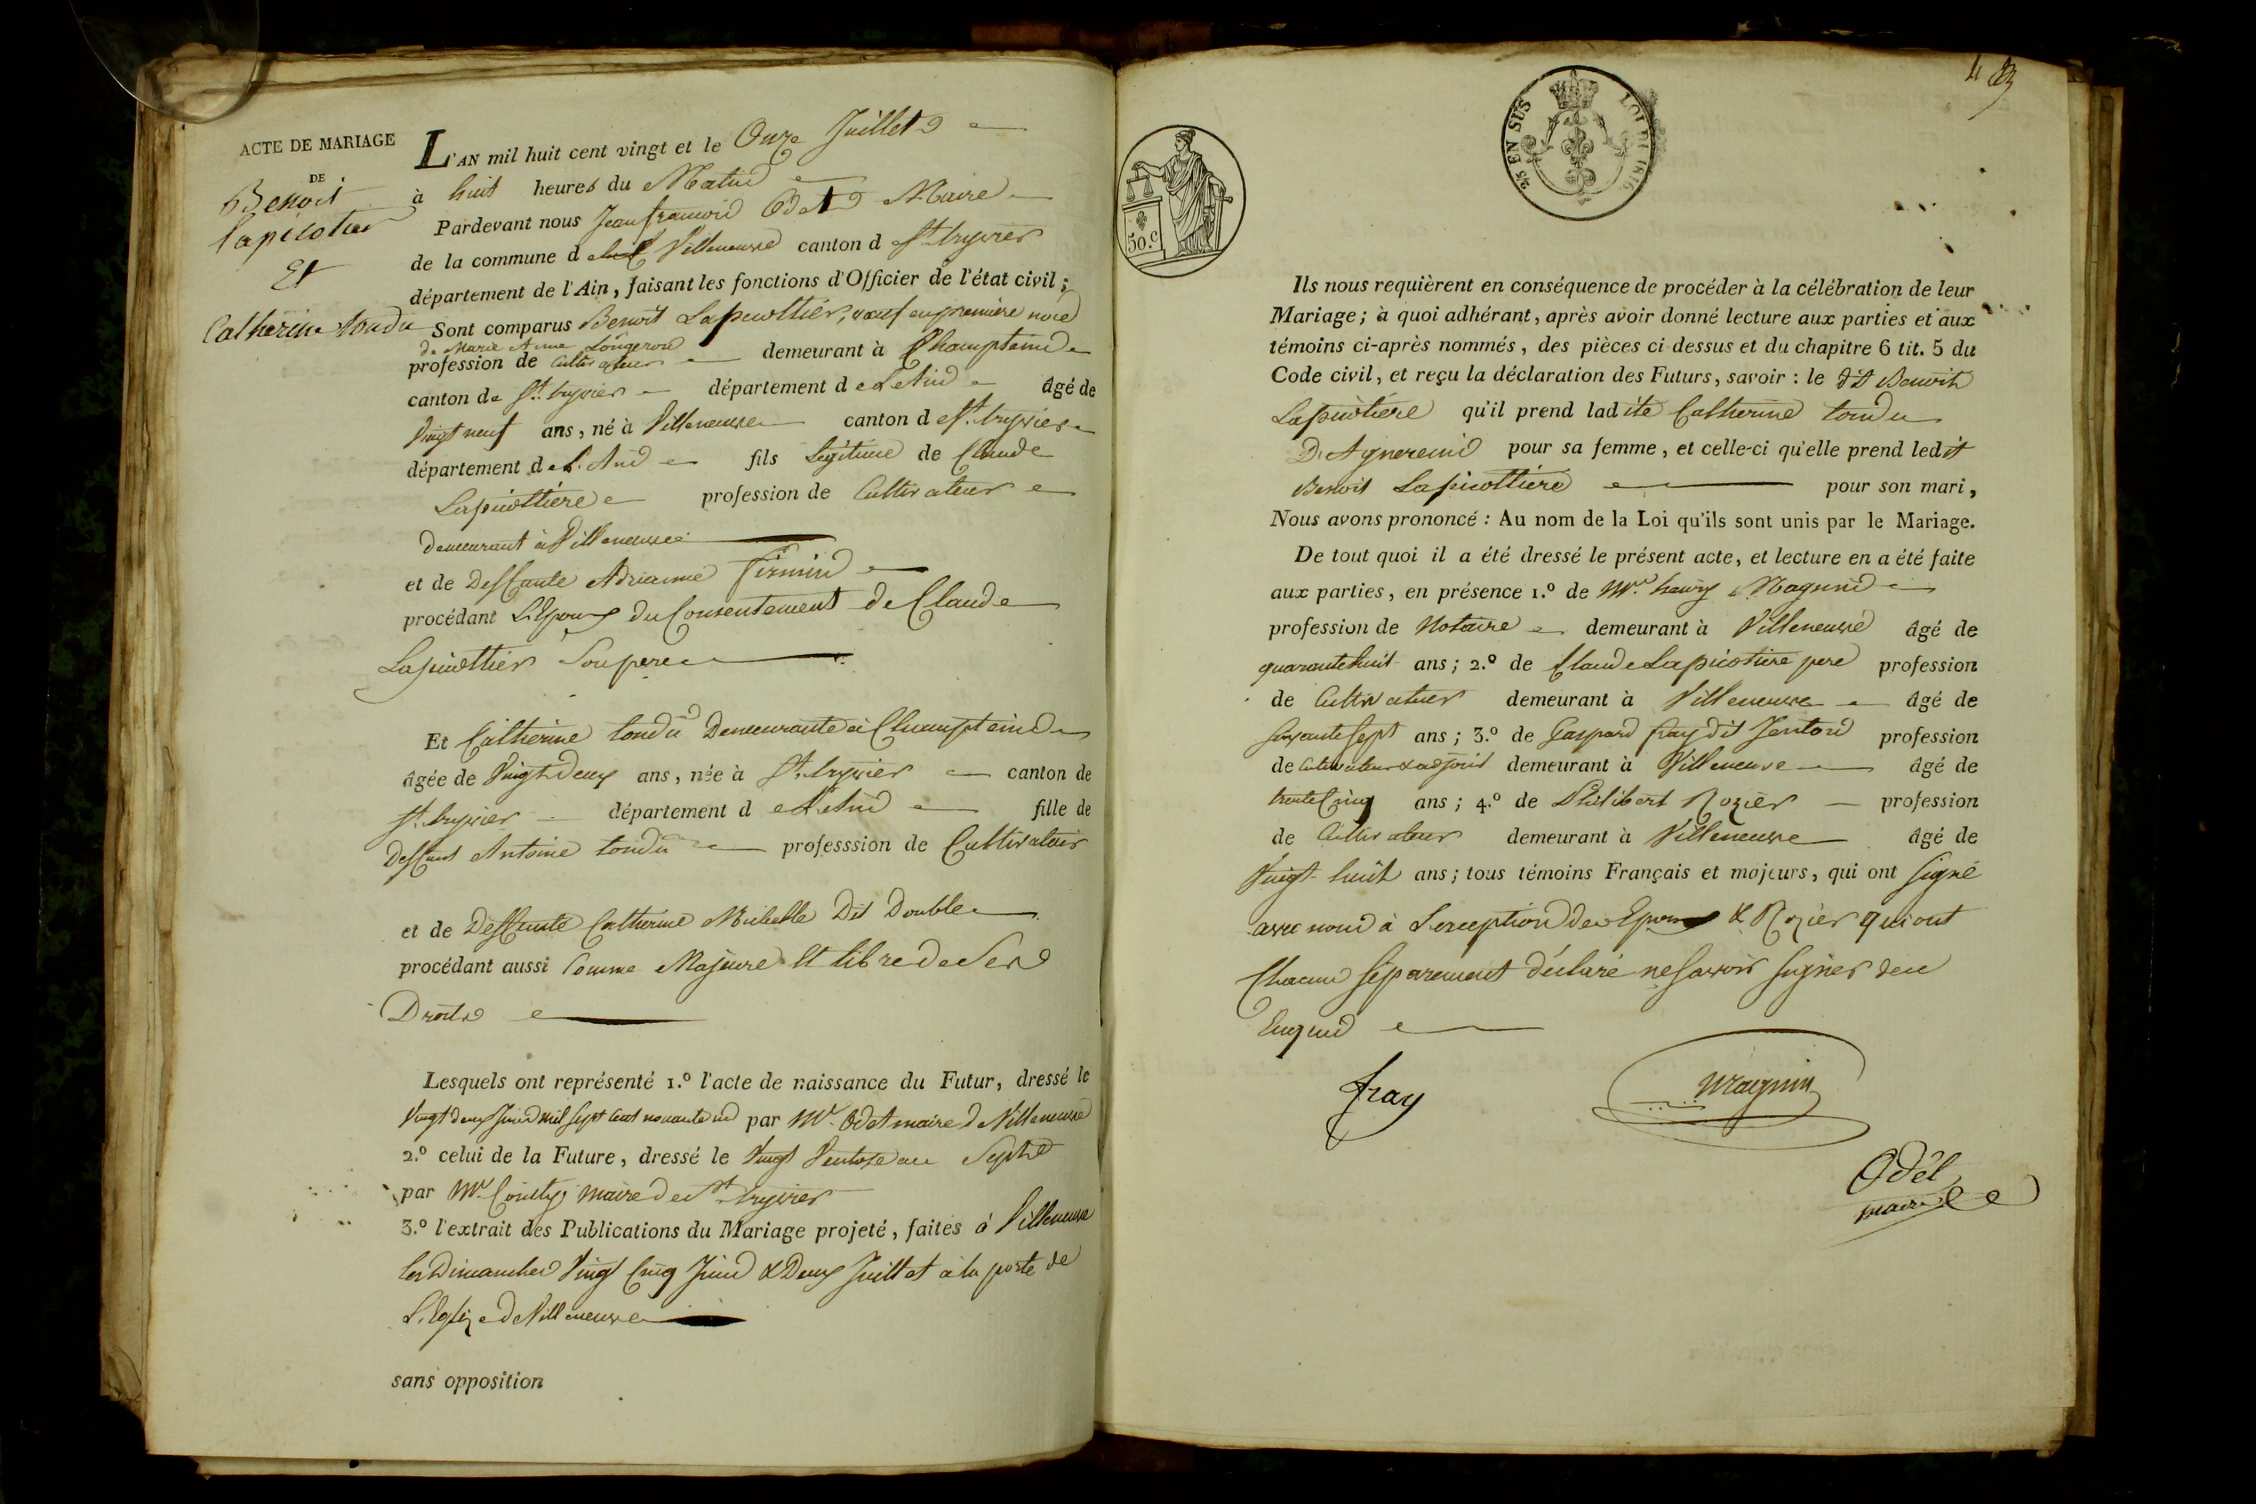 ACTE DE MARIAGE
DE
Benoit
Lapicotier
Et
Catherine tondu
L'AN mil huit cent vingt et le Onze Juillet
à huit heures du Matin
Pardevant nous Jean francois Odet Maire
de la commune de Villeneuve canton d St. tryvier
département de l'Ain, faisant les fonctions d'Officier de l'état civil;
Sont comparus Benoit Lapicottier, veuf en première noce
de Marie Anne Longeron
profession de Cultivateur demeurant à Chaneins
canton de St. tryvier département de L'Ain âgé de
Vingt neuf ans, né à Villeneuve canton d St. tryvier
département de L'Ain fils Légitime de Claude
Lapicottiere profession de Cultivateur
demeurant à Villeneuve
et de Deffunte Adrianne firmin
procédant L'Epoux du Consentement de Claude
Lapicottier Son pere
Et Catherine tondu Demeurante à
âgée de Vingt Deux ans, née à St. tryvier canton de
St. tryvier département de L'Ain fille de
Deffunt Antoine tondu professsion de Cultivateur
et de Deffunte Catherine Michelle Dit Double
procédant aussi Comme Majeure Et libre de Ses
Droits
Lesquels ont représenté 1.º l'acte de naissance du Futur, dressé le
Vingt deux Juin mil Sept Cent novante un par Mr. Odet maire de Villeneuve
2.º celui de la Future, dressé le Vingt Ventose an Sept
par Mr. maire de St. tryvier
3.º l'extrait des Publications du Mariage projeté, faites à Villeneuve
les Dimanches Vingt Cinq Juin & Deux Juillet à la porte de
L'Eglize de Villeneuve
sans opposition
50.C
2/5 EN SUS
LOI DE 1816
Ils nous requièrent en conséquence de procéder à la célébration de leur
Mariage; à quoi adhérant, après avoir donné lecture aux parties et aux
témoins ci-après nommés, des pièces ci dessus et du chapitre 6 tit. 5 du
Code civil, et reçu la déclaration des Futurs, savoir: le dit Benoit
Lapicotiere qu'il prend ladite Catherine tondu
pour sa femme, et celle-ci qu'elle prend ledit
Benoit Lapicottiere pour son mari,
Nous avons prononcé: Au nom de la Loi qu'ils sont unis par le Mariage.
De tout quoi il a été dressé le présent acte, et lecture en a été faite
aux parties, en présence 1.º de Mre. henry Magnin
profession de Notaire demeurant à Villeneuve âgé de
quarante huit ans; 2.º de Claude Lapicotiere pere profession
de Cultivateur demeurant à Villeneuve âgé de
Soixante Sept ans; 3.º de Gaspard fray dit Jenton profession
de Cultivateur & adjoint demeurant à Villeneuve âgé de
trente Cinq ans; 4.º de Philibert Rozier profession
de Cultivateur demeurant à Villeneuve âgé de
Vingt huit ans; tous témoins Français et majeurs, qui ont Signé
avec nous à L'exception des Epoux & Rozier qui ont
Chacun Séparement déclaré ne Savoir Signer de ce
Enquis
fray
Magnin
Odet
maire